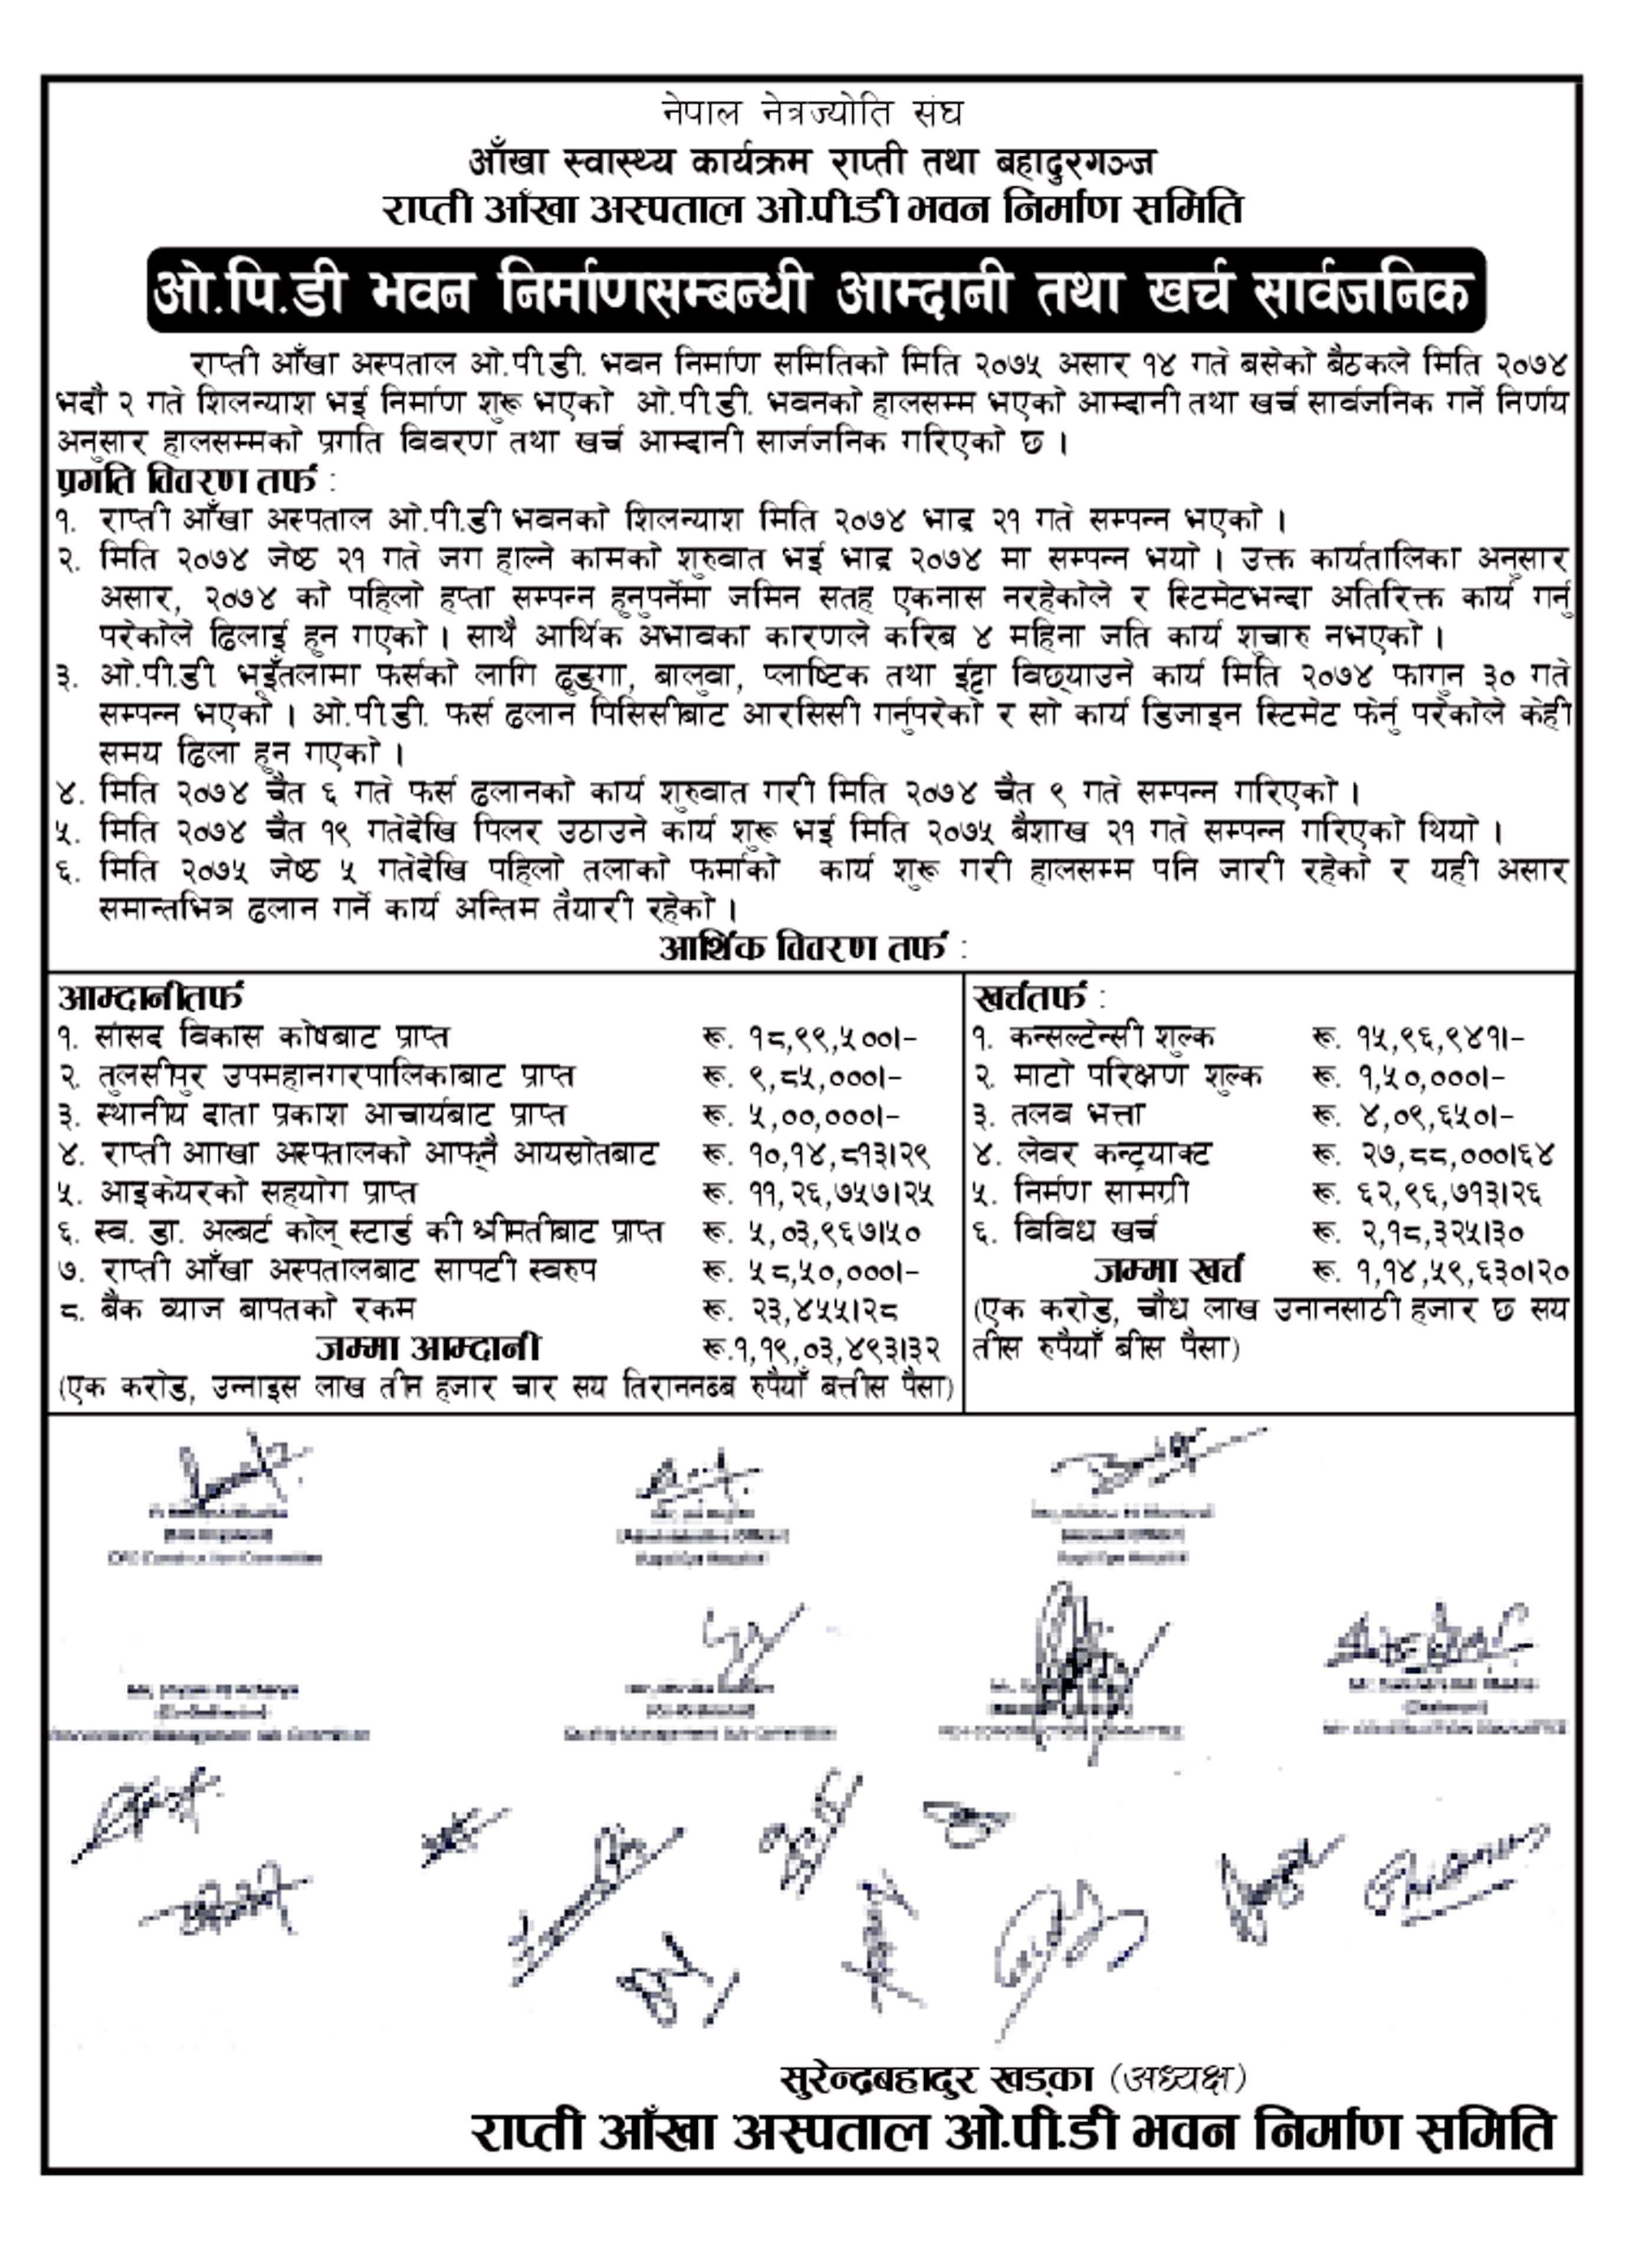 नेपाल नेत्रज्योति संघ
आँखा स्वास्थ्य कार्यक्रम राप्ती तथा बहादुरगञ्ज
राप्ती आँखा अस्पताल ओ.पी.डी भवन निर्माण समिति
ओ.पि.डी भवन निर्माणसम्बन्धी आम्दानी तथा खर्च सार्वजनिक
राप्ती आँखा अस्पताल ओ.पी.डी. भवन निर्माण समितिको मिति २०७५ असार १४ गते बसेको बैठकले मिति २०७४
भदौ २ गते शिलन्याश भई निर्माण शुरू भएको ओ.पी.डी. भवनको हालसम्म भएको आम्दानी तथा खर्च सार्वजनिक गर्ने निर्णय
अनुसार हालसम्मको प्रगति विवरण तथा खर्च आम्दानी सार्जजनिक गरिएको छ ।
प्रगति विवरण तर्फ :
१. राप्ती आँखा अस्पताल ओ.पी.डी भवनको शिलन्याश मिति २०७४ भाद्र २१ गते सम्पन्न भएको ।
२. मिति २०७४ जेष्ठ २१ गते जग हाल्ने कामको शुरुवात भई भाद्र २०७४ मा सम्पन्न भयो । उक्त कार्यतालिका अनुसार
असार, २०७४ को पहिलो हप्ता सम्पन्न हुनुपर्नेमा जमिन सतह एकनास नरहेकोले र स्टिमेटभन्दा अतिरिक्त कार्य गर्नु
परेकोले ढिलाई हुन गएको । साथै आर्थिक अभावका कारणले करिब ४ महिना जति कार्य शुचारु नभएको ।
३. ओ.पी.डी भूइँतलामा फर्सको लागि ढुङ्गा, बालुवा, प्लाष्टिक तथा ईट्टा विछ्याउने कार्य मिति २०७४ फागुन ३० गते
सम्पन्न भएको । ओ.पी.डी. फर्स ढलान पिसिसीबाट आरसिसी गर्नुपरेको र सो कार्य डिजाइन स्टिमेट फेर्नु परेकोले केही
समय ढिला हुन गएको ।
४. मिति २०७४ चैत ६ गते फर्स ढलानको कार्य शुरुवात गरी मिति २०७४ चैत ९ गते सम्पन्न गरिएको ।
५. मिति २०७४ चैत १९ गतेदेखि पिलर उठाउने कार्य शुरू भई मिति २०७५ बैशाख २१ गते सम्पन्न गरिएको थियो ।
६. मिति २०७५ जेष्ठ ५ गतेदेखि पहिलो तलाको फर्माको कार्य शुरू गरी हालसम्म पनि जारी रहेको र यही असार
समान्तभित्र ढलान गर्ने कार्य अन्तिम तैयारी रहेको ।
आर्थिक विवरण तर्फ :
आम्दानीतर्फ
१. सांसद विकास कोषबाट प्राप्त रू. १८,९९,५००।–
२. तुलसीपुर उपमहानगरपालिकाबाट प्राप्त रू. ९,८५,०००।–
३. स्थानीय दाता प्रकाश आचार्यबाट प्राप्त रू. ५,००,०००।–
४. राप्ती आाखा अस्पतालको आफ्नै आयस्रोतबाट रू. १०,१४,८१३।२९
५. आइकेयरको सहयोग प्राप्त रू. ११,२६,७५७।२५
६. स्व. डा. अल्बर्ट कोल् स्टार्ड की श्रीमतीबाट प्राप्त रू. ५,०३,९६७।५०
७. राप्ती आँखा अस्पतालबाट सापटी स्वरुप रू. ५८,५०,०००।–
८. बैंक ब्याज बापतको रकम रू. २३,४५५।२८
जम्मा आम्दानी रू.१,१९,०३,४९३।३२
(एक करोड, उन्नाइस लाख तीन हजार चार सय तिराननब्ब रुपैयाँ बत्तीस पैसा)
खर्चतर्फ :
१. कन्सल्टेन्सी शुल्क रू. १५,९६,९४१।–
२. माटो परिक्षण शुल्क रू. १,५०,०००।–
३. तलव भत्ता रू. ४,०९,६५०।–
४. लेवर कन्ट्रयाक्ट रू. २७,८८,०००।६४
५. निर्मण सामग्री रू. ६२,९६,७१३।२६
६. विविध खर्च रू. २,१८,३२५।३०
जम्मा खर्च रू. १,१४,५९,६३०।२०
(एक करोड, चौध लाख उनानसाठी हजार छ सय
तीस रुपैयाँ बीस पैसा)
सुरेन्द्रबहादुर खड्का (अध्यक्ष)
राप्ती आँखा अस्पताल ओ.पी.डी भवन निर्माण समिति